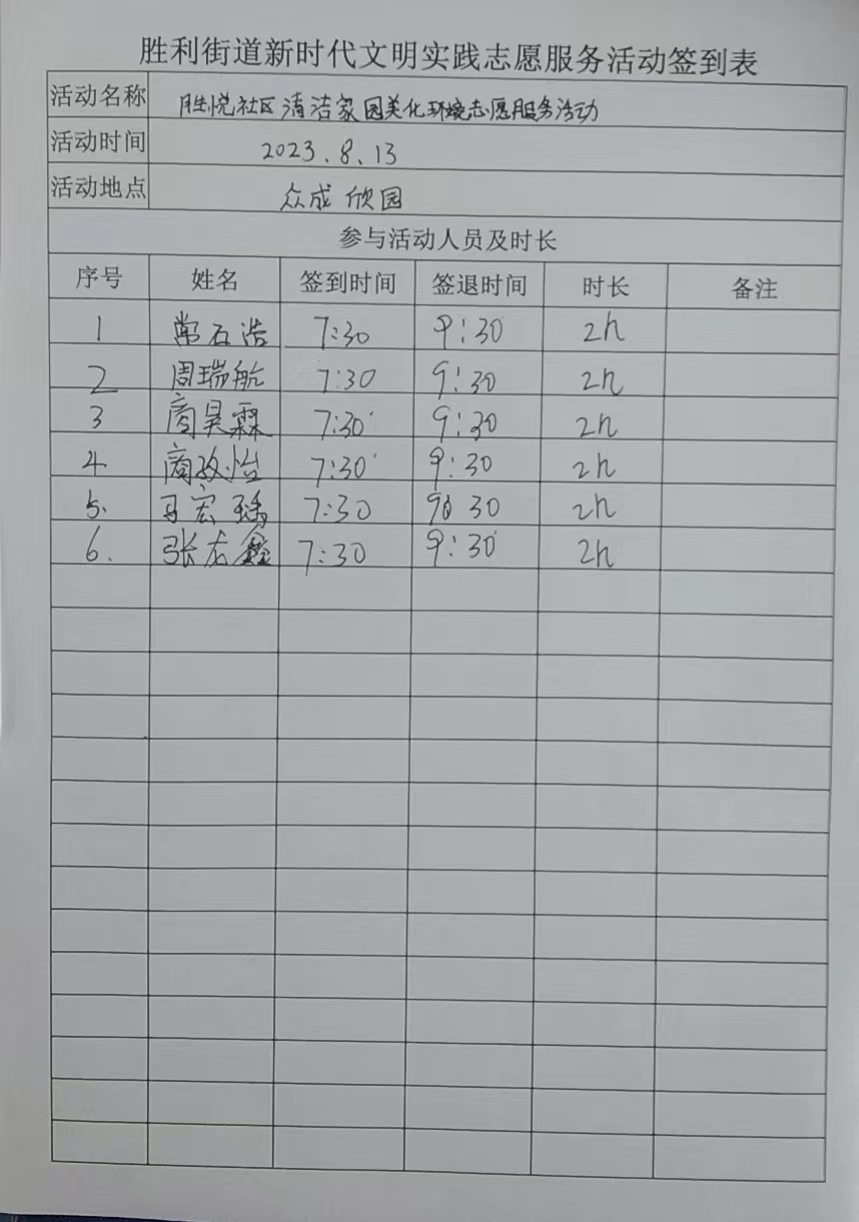 胜利街道新时代文明实践志愿服务活动签到表
活动名称 胜悦社区清洁家园美化环境志愿服务活动
活动时间 2023.8.13
活动地点 众成欣园
参与活动人员及时长
序号 姓名 签到时间 签退时间 时长 备注
1 常石浩 7:30 9:30 2h
2 周瑞航 7:30 9:30 2h
3 商昊霖 7:30 9:30 2h
4. 商孜怡 7:30 9:30 2h
5. 马宏瑶 7:30 9:30 2h
6. 张志鑫 7:30 9:30 2h